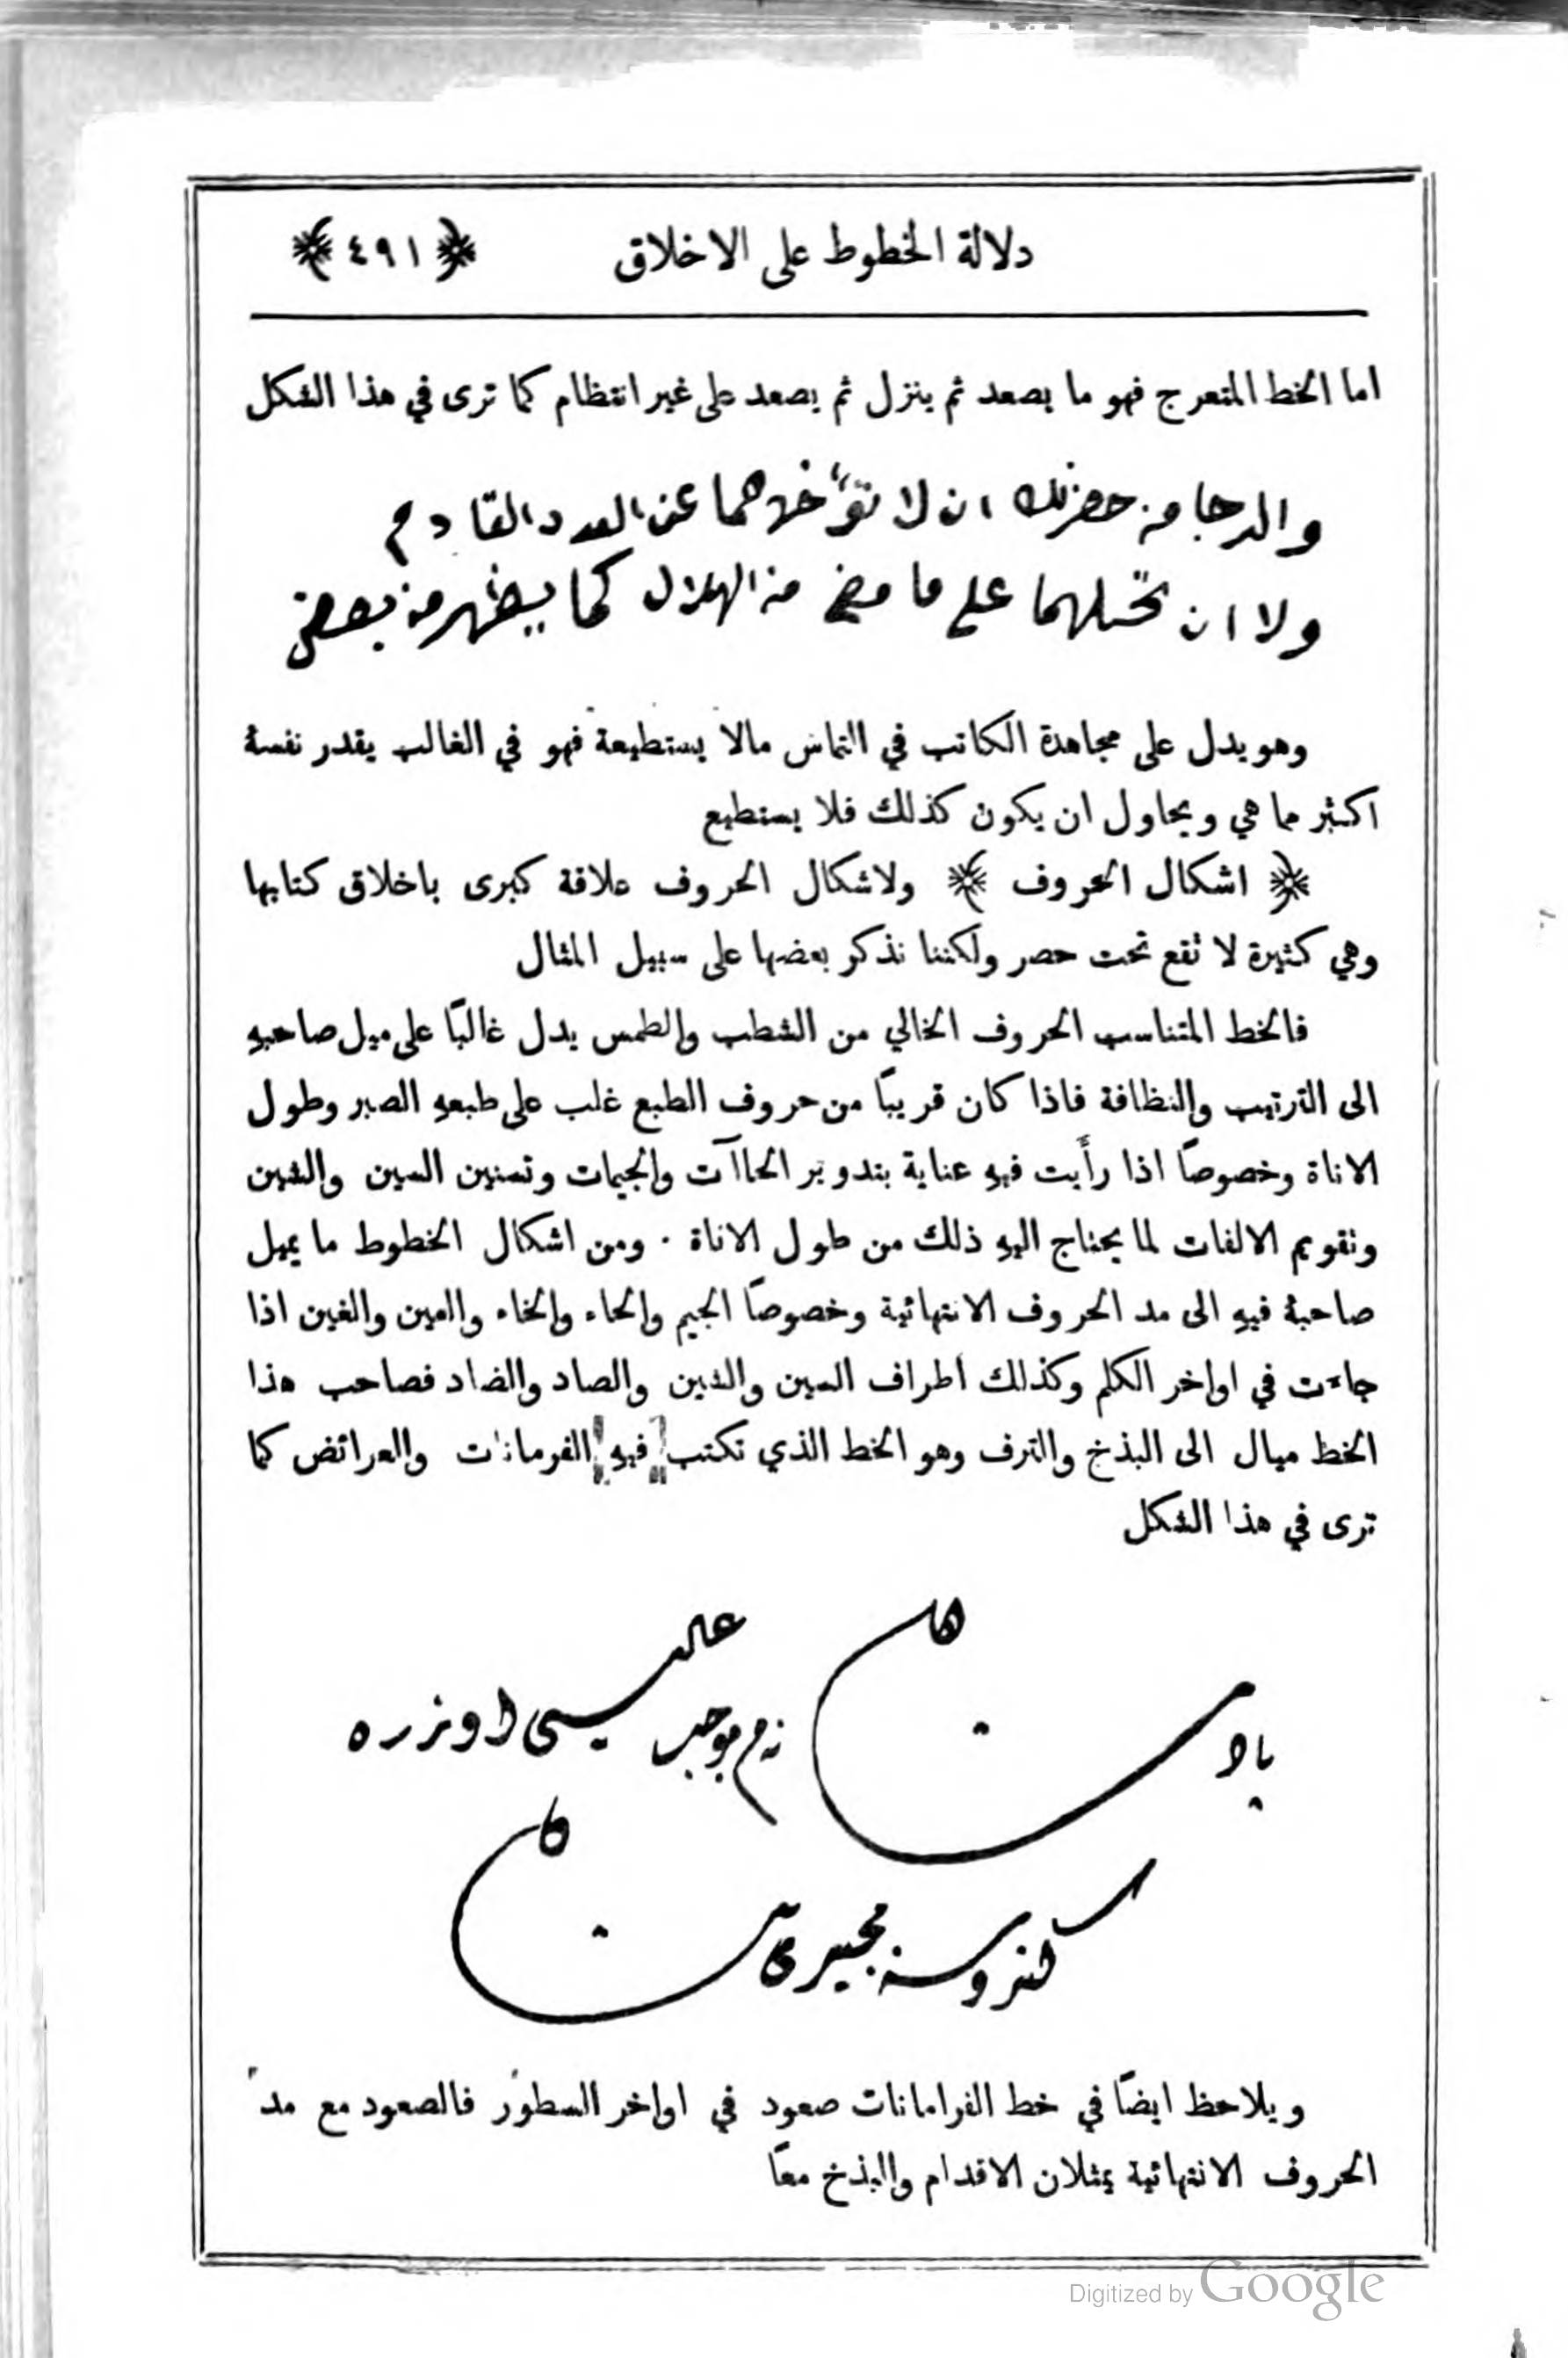 دلالة الخطوط على الاخلاق ﴿٤٩١﴾
اما الخط المتعرج فهو ما يصعد ثم ينزل ثم يصعد على غير انتظام كما ترى في هذا الشكل
والرجا من حضرتك ان لا تؤخرهما عن العدد القادم
ولا ان تحملهما على ما مضى من الهلال كما يظهر من بعض
وهو يدل على مجاهدة الكاتب في التماس مالا يستطيعهُ فهو في الغالب يقدر نفسهُ
اكثر مما هي ويحاول ان يكون كذلك فلا يستطيع
﴿ اشكال الحروف ﴾ ولاشكال الحروف علاقة كبرى باخلاق كتابها
وهي كثيرة لا تقع تحت حصر ولكننا نذكر بعضها على سبيل المثال
فالخط المتناسب الحروف الخالي من الشطب والطمس يدل غالبًا على ميل صاحبهِ
الى الترتيب والنظافة فاذا كان قريبًا من حروف الطبع غلب على طبعهِ الصبر وطول
الاناة وخصوصًا اذا رأيت فيهِ عناية بتدوير الحاآت والجيمات وتسنين السين والشين
وتقويم الالفات لما يحتاج اليهِ ذلك من طول الاناة · ومن اشكال الخطوط ما يميل
صاحبهُ فيهِ الى مد الحروف الانتهائية وخصوصًا الجيم والحاء والخاء والعين والغين اذا
جاءت في اواخر الكلم وكذلك اطراف السين والشين والصاد والضاد فصاحب هذا
الخط ميال الى البذخ والترف وهو الخط الذي تكتب فيهِ الفرمانات والعرائض كما
ترى في هذا الشكل
ويلاحظ ايضًا في خط الفرامانات صعود في اواخر السطور فالصعود مع مد
الحروف الانتهائية يمثلان الاقدام والبذخ معًا
Digitized by Google